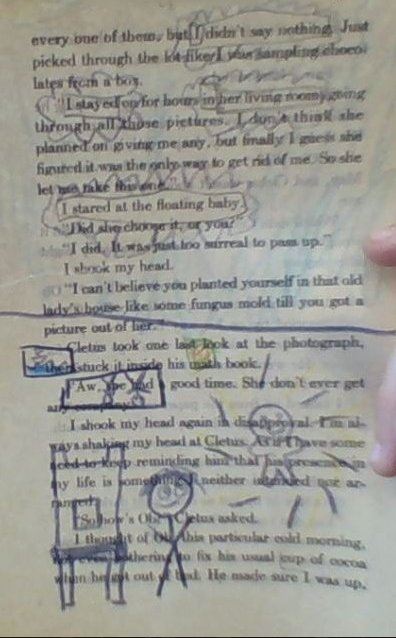 every one of them, but I didn't say nothing. Just
picked through the lot like I was sampling choco-
lates from a box.
"I stayed on for hours in her living room, going
through all those pictures. I don't think she
planned on giving me any, but finally I guess she
figured it was the only way to get rid of me. So she
let me take this one."
I stared at the floating baby.
"Did she choose it, or you?"
"I did. It was just too surreal to pass up."
I shook my head.
"I can't believe you planted yourself in that old
lady's house like some fungus mold till you got a
picture out of her."
Cletus took one last look at the photograph,
then stuck it inside his math book.
"Aw, she had a good time. She don't ever get
any company."
I shook my head again in disapproval. I'm al-
ways shaking my head at Cletus. As if I have some
need to keep reminding him that his presence in
my life is something I neither intended nor ar-
ranged.
"So how's Ob?" Cletus asked.
I thought of Ob this particular cold morning,
not even bothering to fix his usual cup of cocoa
when he got out of bed. He made sure I was up,